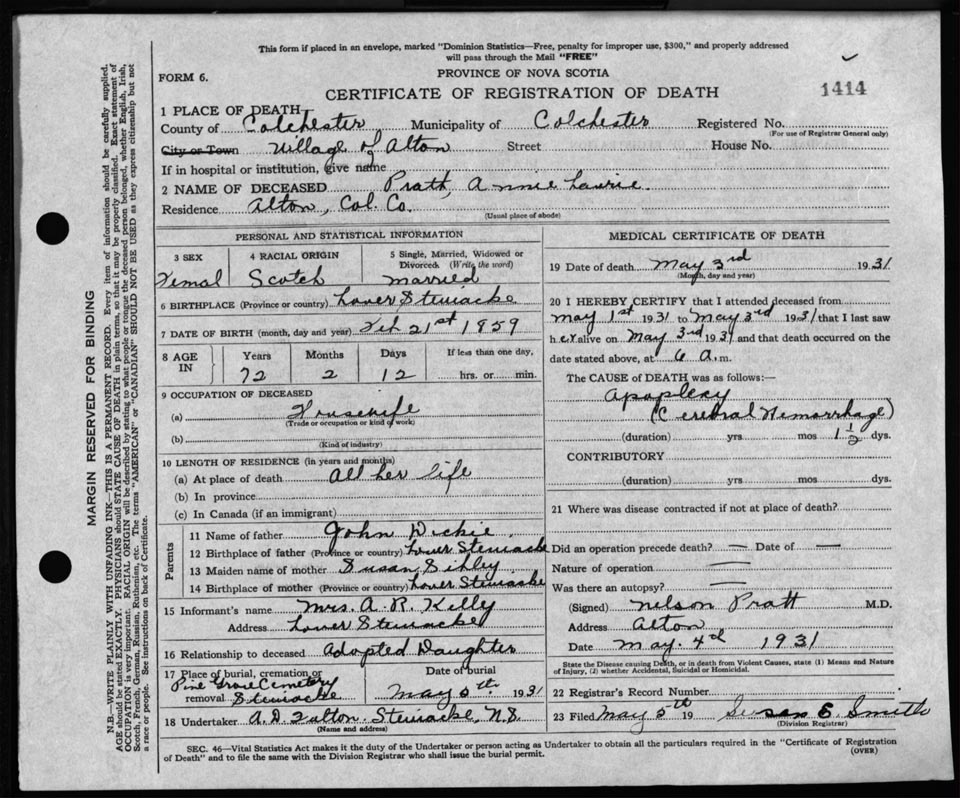 This form if placed in an envelope, marked "Dominion Statistics—Free, penalty for improper use, $300," and properly addressed
will pass through the Mail "FREE"
FORM 6.
PROVINCE OF NOVA SCOTIA
CERTIFICATE OF REGISTRATION OF DEATH
1414
1 PLACE OF DEATH
County of Colchester Municipality of Colchester Registered No.
(For use of Registrar General only)
City or Town Village of Alton Street House No.
If in hospital or institution, give name
2 NAME OF DECEASED Pratt, Annie Laurie.
Residence Alton, Col. Co.
(Usual place of abode)
PERSONAL AND STATISTICAL INFORMATION
3 SEX 4 RACIAL ORIGIN 5 Single, Married, Widowed or Divorced. (Write the word)
Femal Scotch married
6 BIRTHPLACE (Province or country) Lower Stewiacke
7 DATE OF BIRTH (month, day and year) Feb 21st 1859
8 AGE IN Years Months Days If less than one day,
72 2 12 hrs. or min.
9 OCCUPATION OF DECEASED
(a) Housewife
(Trade or occupation or kind of work)
(b)
(Kind of industry)
10 LENGTH OF RESIDENCE (in years and months)
(a) At place of death all her life
(b) In province
(c) In Canada (if an immigrant)
Parents
11 Name of father John Dickie
12 Birthplace of father (Province or country) Lower Stewiacke
13 Maiden name of mother Susan Sibley
14 Birthplace of mother (Province or country) Lower Stewiacke
15 Informant's name Mrs. A. R. Kelly
Address Lower Stewiacke
16 Relationship to deceased Adopted Daughter
17 Place of burial, cremation or removal Pine Grove Cemetery Stewiacke
Date of burial
May 5th 1931
18 Undertaker A. D. Fulton. Stewiacke, N.S.
(Name and address)
MEDICAL CERTIFICATE OF DEATH
19 Date of death May 3rd 1931
(Month, day and year)
20 I HEREBY CERTIFY that I attended deceased from
May 1st 1931 to May 3rd 1931 that I last saw
her alive on May 3rd 1931 and that death occurred on the
date stated above, at 6 A.m.
The CAUSE of DEATH was as follows:—
Apoplexy
(Cerebral Hemorrhage)
(duration) yrs mos 1 1/2 dys.
CONTRIBUTORY
(duration) yrs. mos. dys.
21 Where was disease contracted if not at place of death?
Did an operation precede death? — Date of —
Nature of operation —
Was there an autopsy? —
(Signed) Nelson Pratt M.D.
Address Alton
Date May. 4th 1931
State the Disease causing Death, or in death from Violent Causes, state (1) Means and Nature
of Injury, (2) whether Accidental, Suicidal or Homicidal.
22 Registrar's Record Number
23 Filed May 5th 19 Susan E. Smith
(Division Registrar)
SEC. 46—Vital Statistics Act makes it the duty of the Undertaker or person acting as Undertaker to obtain all the particulars required in the "Certificate of Registration
of Death" and to file the same with the Division Registrar who shall issue the burial permit.
(OVER)
MARGIN RESERVED FOR BINDING
N.B.—WRITE PLAINLY WITH UNFADING INK—THIS IS A PERMANENT RECORD. Every item of information should be carefully supplied.
AGE should be stated EXACTLY. PHYSICIANS should STATE CAUSE OF DEATH in plain terms, so that it may be properly classified. Exact statement of
OCCUPATION is very important. RACIAL ORIGIN will be described by stating to what people or tongue the deceased person belonged, whether English, Irish,
Scotch, French, German, Russian, Ruthenian, etc. The terms "AMERICAN" or "CANADIAN" SHOULD NOT BE USED as they express citizenship but not
a race or people. See instructions on back of Certificate.